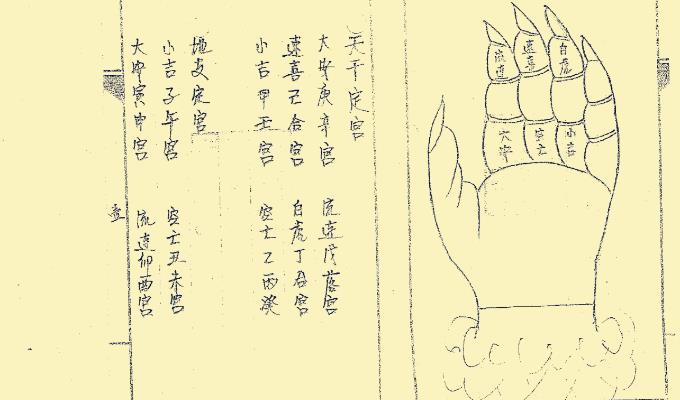 白虎
速喜
流連
小吉
空亡
大安
天干定宮
大安庚辛宮
流連戊落宮
速喜己合宮
白虎丁君宮
小吉甲壬宮
空亡乙丙癸
地支定宮
小吉子午宮
空亡丑未宮
大安寅申宮
流連卯酉宮